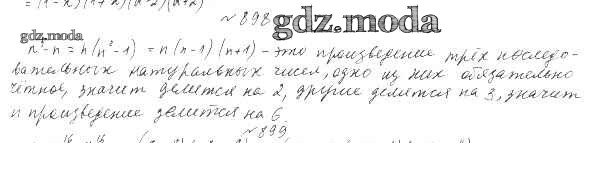 = (1-x)(1+x)(x-2)(x+2)
~898
gdz.moda
gdz.moda
n³-n = n(n²-1) = n(n-1)(n+1) - это произведение трёх последо-
вательных натуральных чисел, одно из них обязательно
чётное, значит делится на 2, другие делятся на 3, значит
и произведение делится на 6.
~899